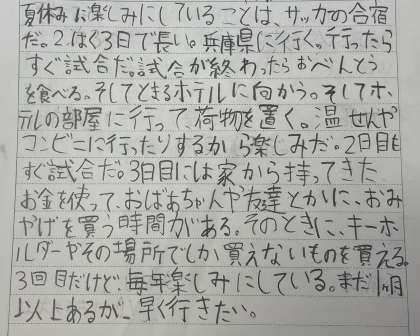 夏休みに楽しみにしていることは、サッカの合宿
だ。2はく3日で長い。兵庫県に行く。行ったら
すぐ試合だ。試合が終わったらおべんとう
を食べる。そしてとまるホテルに向から。そしてホ
テルの部屋に行って、荷物を置く。温せんや
コンビニに行ったりするから楽しみだ。2日目も
すぐ試合だ。3日目には家から持ってきた
お金を使って、おばあちゃんや友達とかに、おみ
やげを買う時間がある。そのときに、キーホ
ルダーやその場所でしか買えないものを買える。
3回目だけど、毎年楽しみにしている。まだ1ヶ月
以上あるが、早く行きたい。